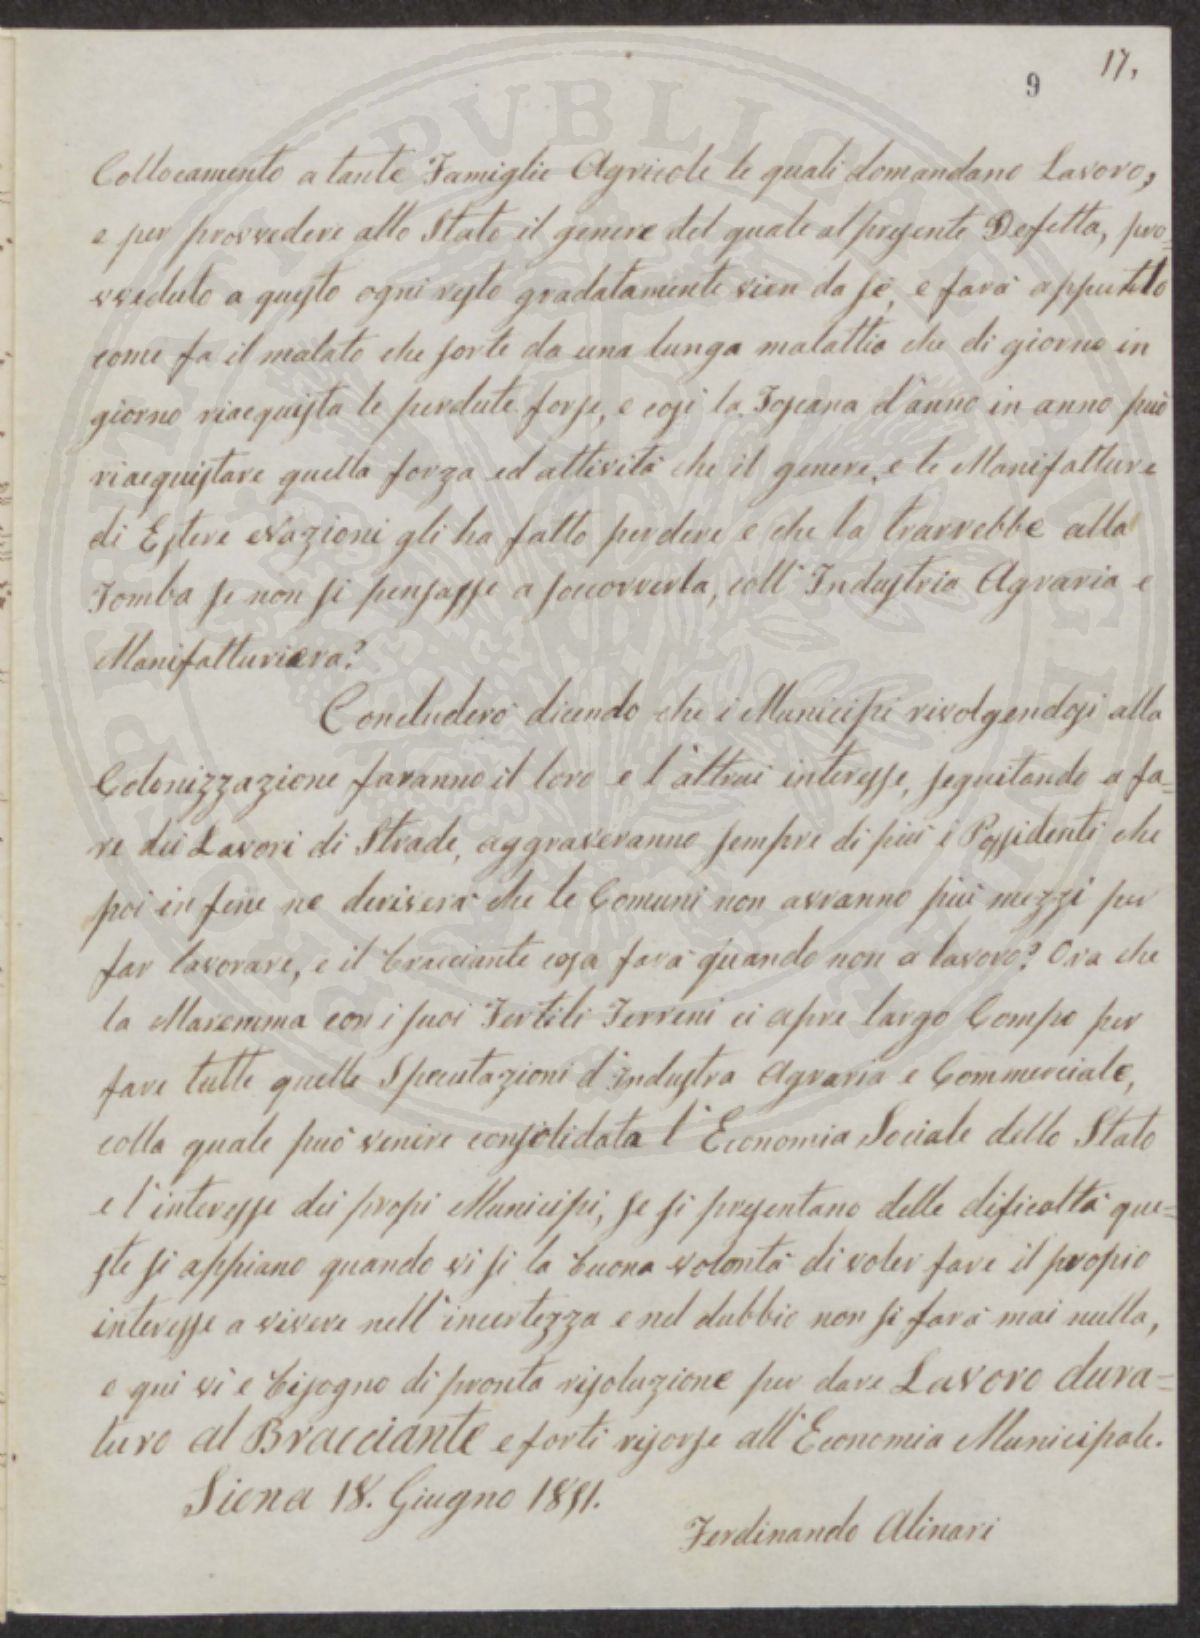 17,
9
Collocamento a tante Famiglie Agricole le quali domandano Lavoro,
e per provvedere allo Stato il genere del quale al presente Defetta, pro=
vveduto a questo ogni resto gradatamente vien da sè, e farà appuntto
come fa il malato che sorte da una lunga malattia che di giorno in
giorno riacquista le perdute forse, e così la Toscana d'anno in anno può
riacquistare quella forza ed attività che il genere, e le Manifatture
di Estere Nazioni gli ha fatto perdere e che la trarrebbe alla
Tomba se non si pensasse a soccorrerla, coll'Industria Agraria e
Manifatturiera?
Concluderò dicendo che i Municipi rivolgendosi alla
Colonizzazione faranno il loro e l'altrui interesse, seguitando a fa=
re dei Lavori di Strade, aggraveranno sempre di più i Possidenti che
poi in fine ne deriverà che le Comuni non avranno più mezzi per
far lavorare, e il bracciante cosa farà quando non a lavoro? Ora che
la Maremma con i suoi Fertili Terreni ci apre largo Campo per
fare tutte quelle Speculazioni d'industra Agraria e Commerciale,
colla quale può venire consolidata l'Economia Sociale dello Stato
e l'interesse dei propi Municipi, se si presentano delle dificoltà que=
ste si appiano quando vi si la buona volontà di voler fare il propio
interesse a vivere nell'incertezza e nel dubbio non si farà mai nulla,
e qui vi e bisogno di pronta risoluzione per dare Lavoro dura=
turo al Bracciante e forti risorse all'Economia Municipale.
Siena 18. Giugno 1851.
Ferdinando Alinari